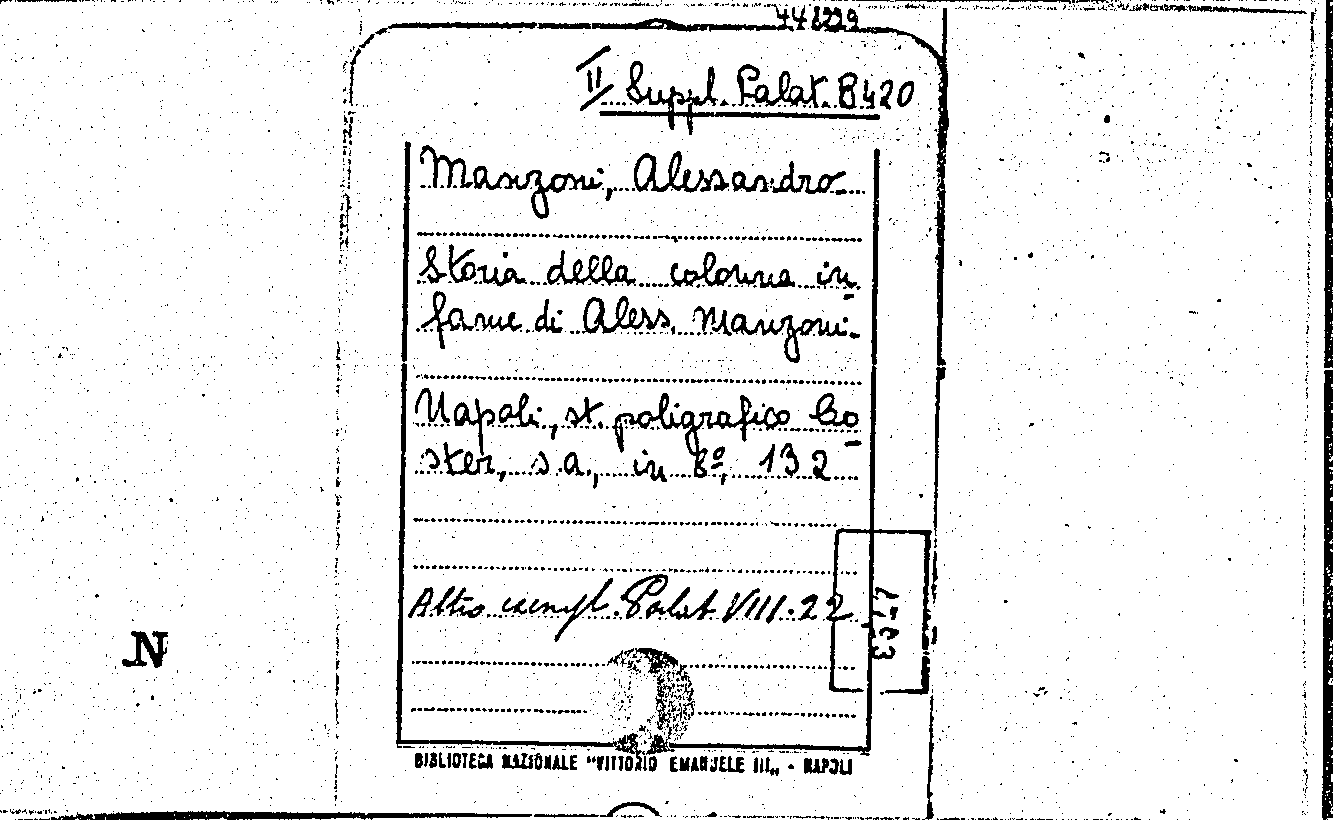 448229
II Suppl. Palat. B420
Manzoni, Alessandro
Storia della colonna in
fame di Aless. Manzoni.
Napoli, st. poligrafico Co
ster, s.a., in 8º, 132
Altro exempl. Palat VIII.22
N
BIBLIOTECA NAZIONALE "VITTORIO EMANUELE III„ - NAPOLI